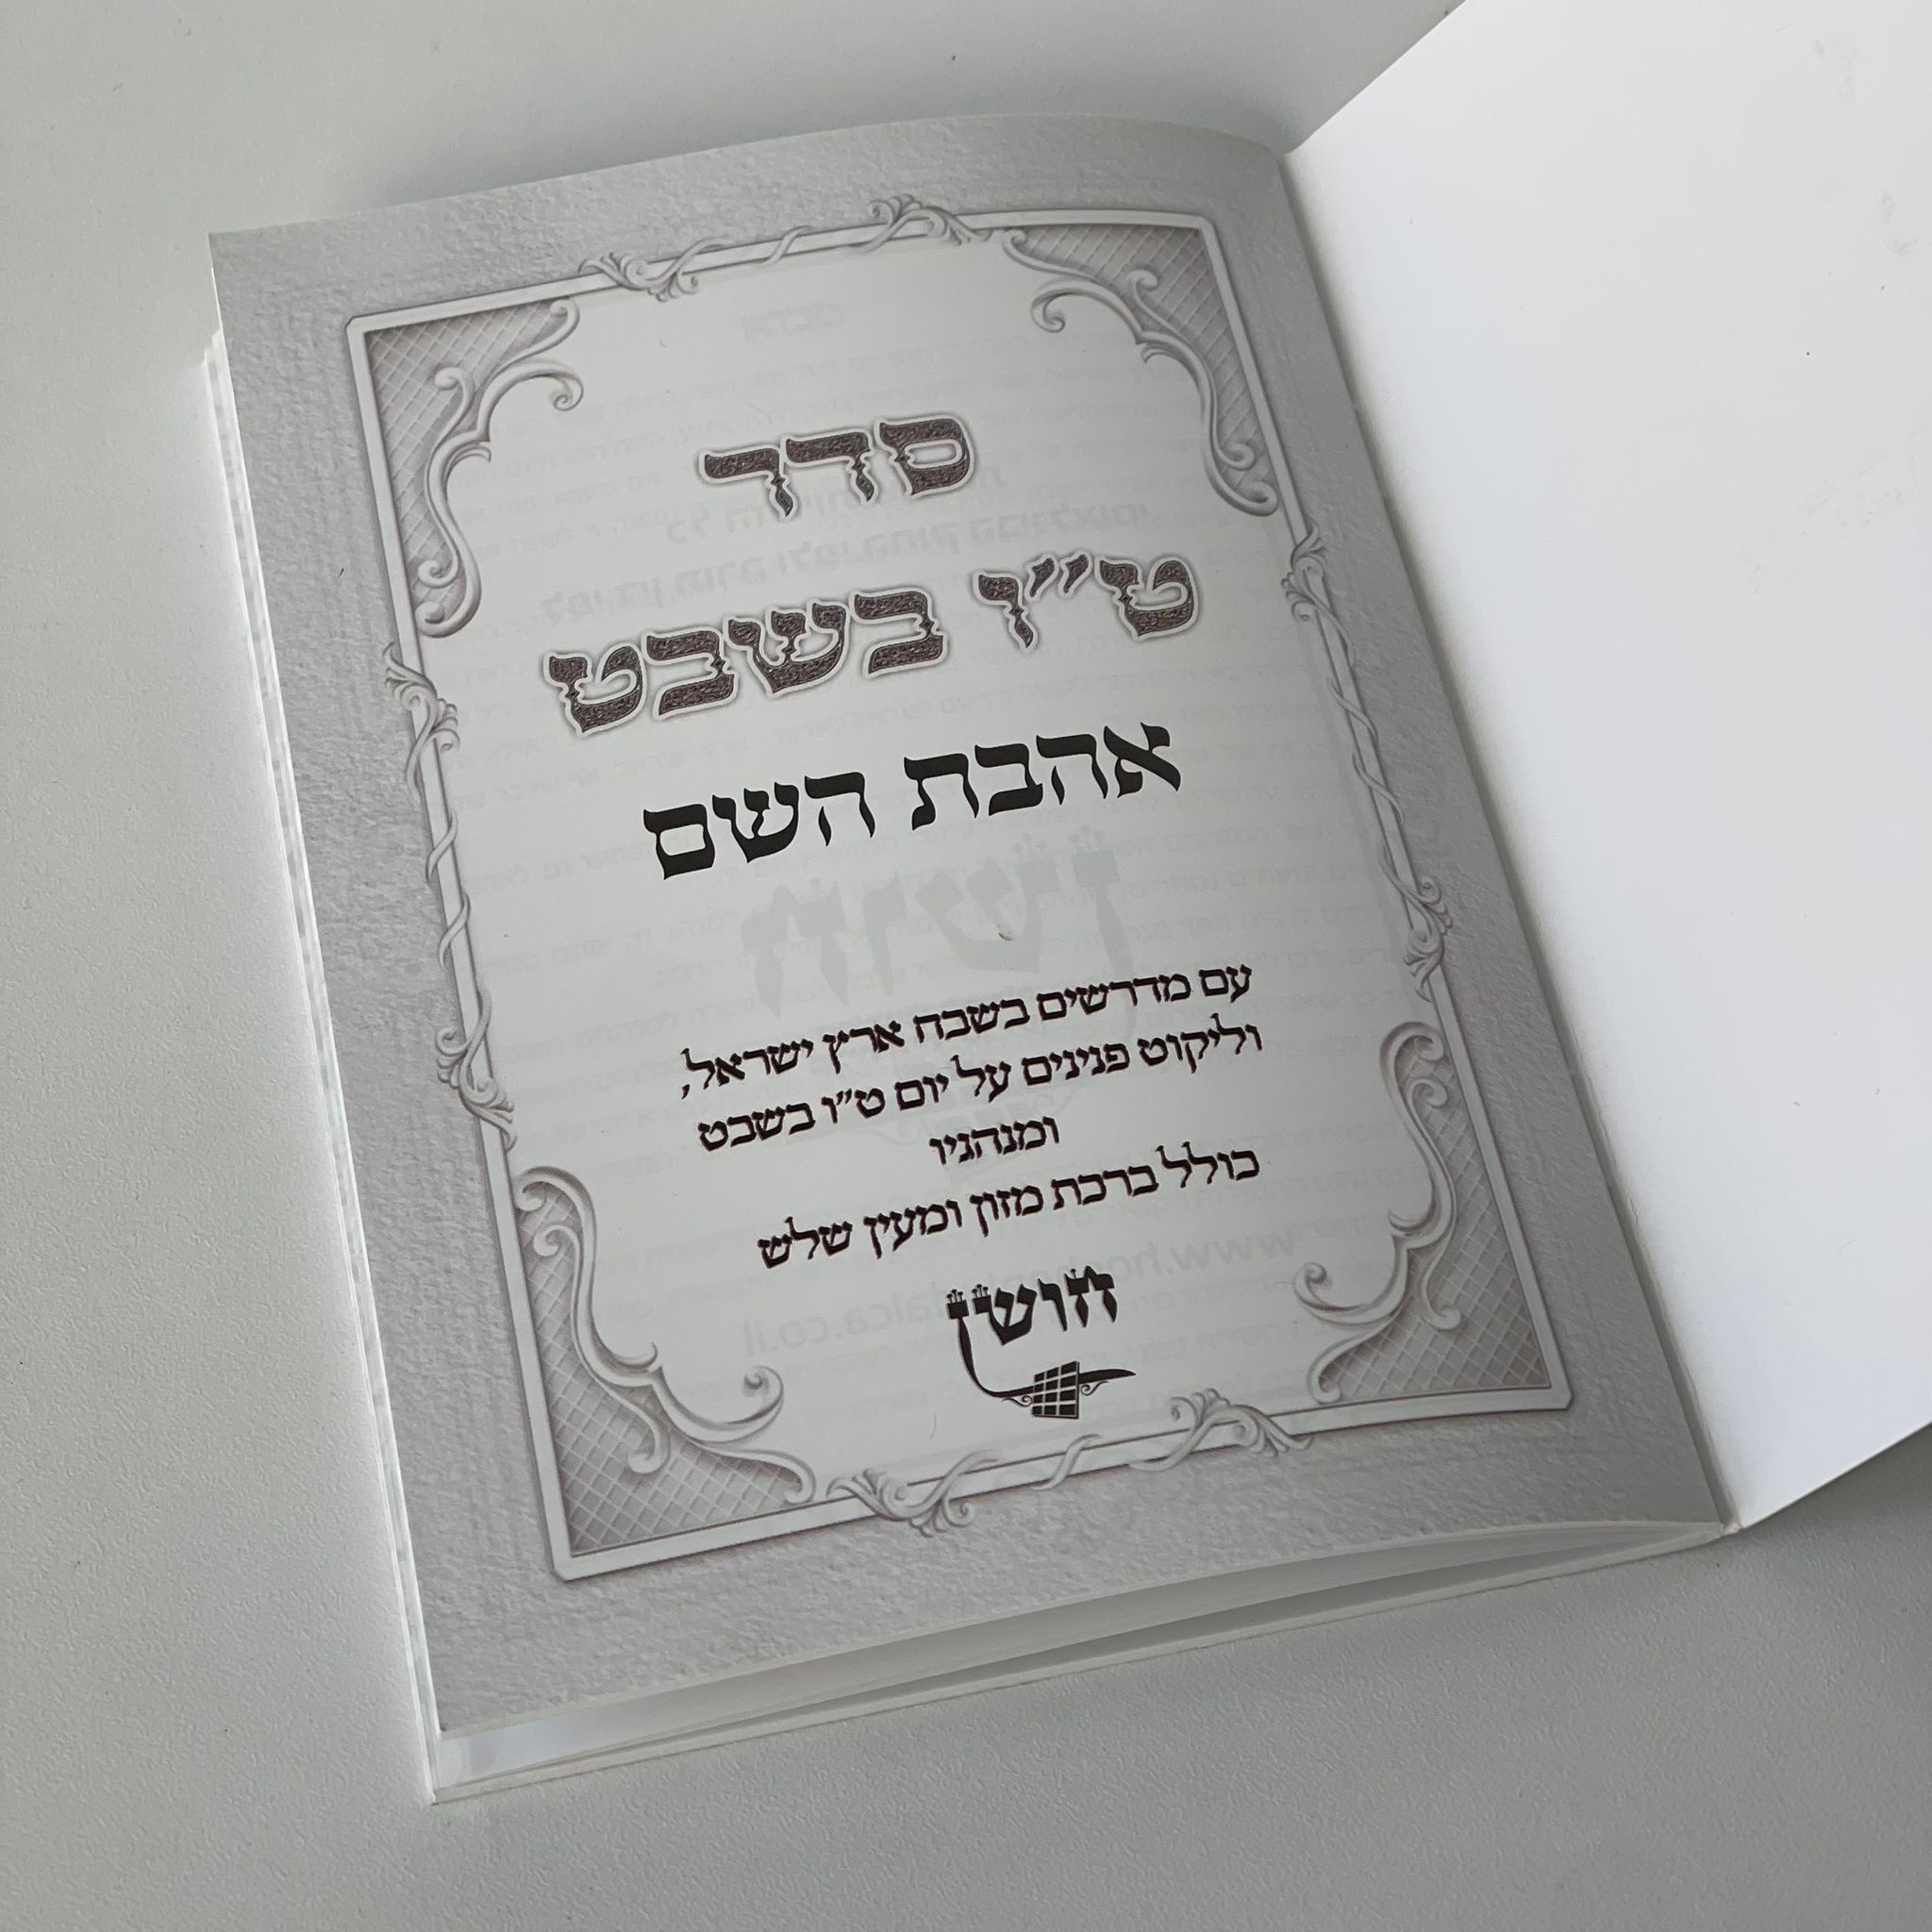 סדר
ט״ו בשבט
אהבת השם
עם מדרשים בשבח ארץ ישראל,
וליקוט פנינים על יום ט״ו בשבט
ומנהגיו
כולל ברכת מזון ומעין שלש
חושן